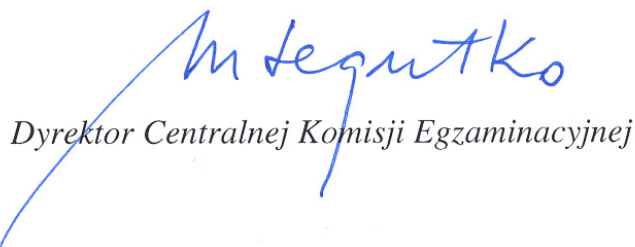 M Legutko
Dyrektor Centralnej Komisji Egzaminacyjnej